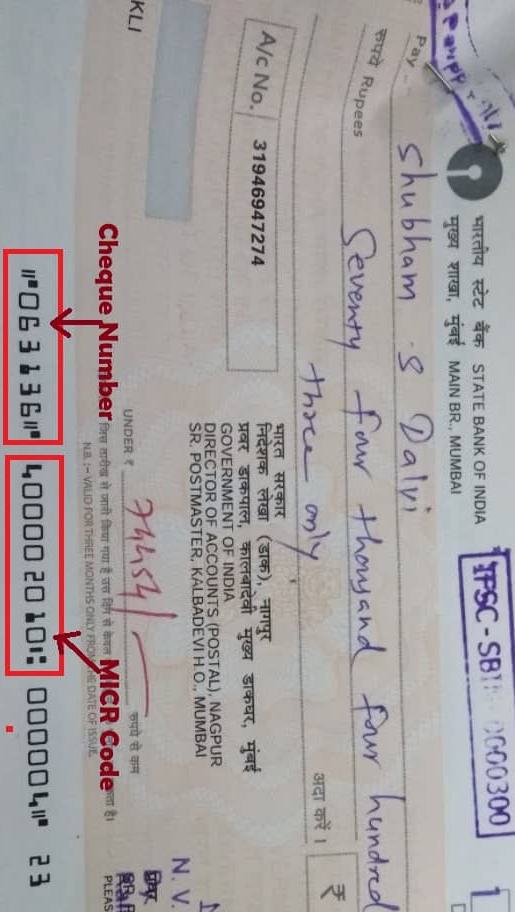 भारतीय स्टेट बैंक STATE BANK OF INDIA
मुख्य शाखा, मुंबई MAIN BR., MUMBAI
IFSC - SBIN 0000300
Pay
Shubham S Dalvi
रूपये Rupees
Seventy four thousand four hundred
three only
अदा करें । ₹
A/c No. 31946947274
भारत सरकार
निदेशक लेखा (डाक), नागपुर
प्रवर डाकपाल, कालबादेवी मुख्य डाकघर, मुंबई
GOVERNMENT OF INDIA
DIRECTOR OF ACCOUNTS (POSTAL), NAGPUR
SR. POSTMASTER, KALBADEVI H.O., MUMBAI
UNDER ₹ रूपये से कम
KLI
N. V.
जिस तारीख से जारी किया गया है उस दिन से केवल
N.B. :- VALID FOR THREE MONTHS ONLY FROM THE DATE OF ISSUE.
PLEAS
Cheque Number
MICR Code
⑈063136⑈ 400002010⑆ 000004⑈ 23